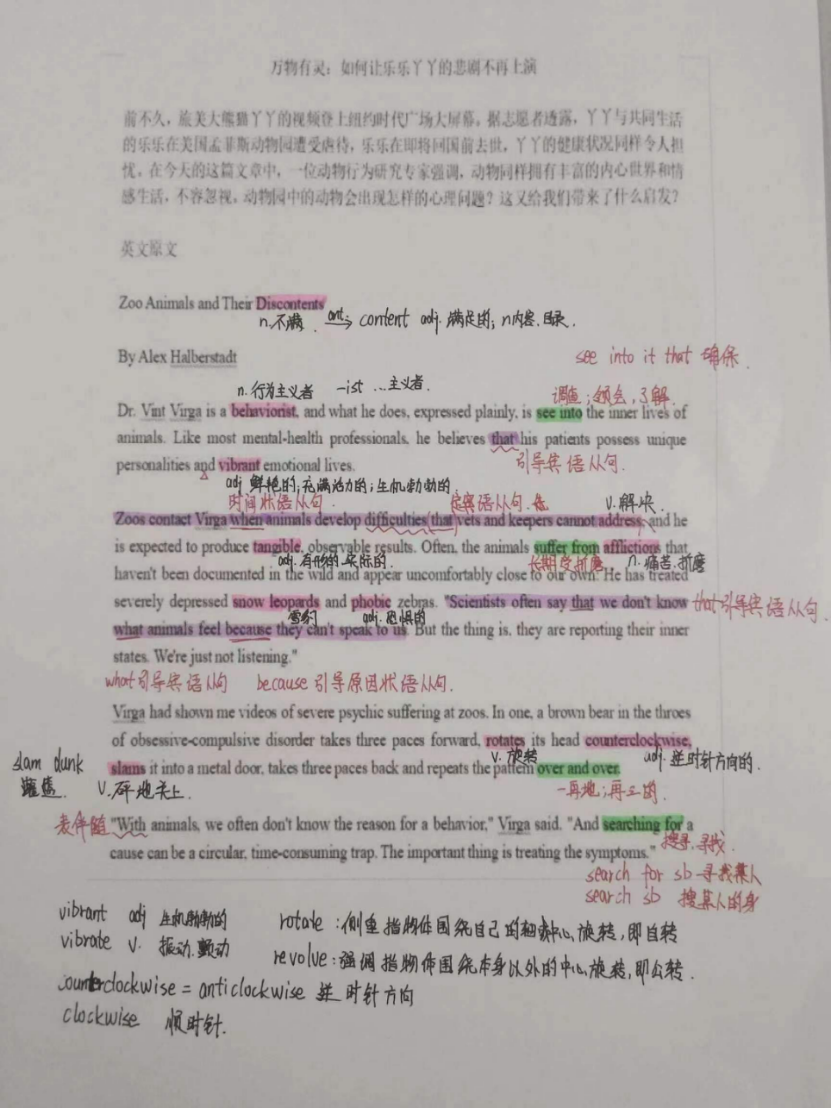 万物有灵：如何让乐乐丫丫的悲剧不再上演
前不久，旅美大熊猫丫丫的视频登上纽约时代广场大屏幕。据志愿者透露，丫丫与共同生活
的乐乐在美国孟菲斯动物园遭受虐待，乐乐在即将回国前去世，丫丫的健康状况同样令人担
忧。在今天的这篇文章中，一位动物行为研究专家强调，动物同样拥有丰富的内心世界和情
感生活，不容忽视。动物园中的动物会出现怎样的心理问题？这又给我们带来了什么启发？
英文原文
Zoo Animals and Their Discontents
n.不满 ant. → content adj. 满足的；n内容.目录.
By Alex Halberstadt
see into it that 确保.
n.行为主义者 -ist …主义者.
调查；领会，了解.
Dr. Vint Virga is a behaviorist, and what he does, expressed plainly, is see into the inner lives of
animals. Like most mental-health professionals, he believes that his patients possess unique
personalities and vibrant emotional lives.
引导宾语从句.
adj 鲜艳的；充满活力的；生机勃勃的
时间状语从句 定宾语从句. v.解决
Zoos contact Virga when animals develop difficulties that vets and keepers cannot address, and he
is expected to produce tangible, observable results. Often, the animals suffer from afflictions that
adj.有形的.实际的. 长期受折磨. n.痛苦.折磨
haven't been documented in the wild and appear uncomfortably close to our own. He has treated
severely depressed snow leopards and phobic zebras. "Scientists often say that we don't know
that引导宾语从句.
雪豹 adj.恐惧的
what animals feel because they can't speak to us. But the thing is, they are reporting their inner
states. We're just not listening."
what引导宾语从句 because引导原因状语从句.
Virga had shown me videos of severe psychic suffering at zoos. In one, a brown bear in the throes
of obsessive-compulsive disorder takes three paces forward, rotates its head counterclockwise,
v.旋转 adj.逆时针方向的.
slam dunk
灌篮.
slams it into a metal door, takes three paces back and repeats the pattern over and over.
v.砰地关上 一再地；再三的.
表伴随 "With animals, we often don't know the reason for a behavior," Virga said. "And searching for a
搜寻.寻找.
cause can be a circular, time-consuming trap. The important thing is treating the symptoms."
search for sb 寻找某人
search sb 搜某人的身
vibrant adj 生机勃勃的
vibrate v. 振动.颤动
rotate：侧重指物体围绕自己的轴或中心旋转，即自转
revolve：强调指物体围绕本身以外的中心旋转，即公转.
counterclockwise = anticlockwise 逆时针方向
clockwise 顺时针.